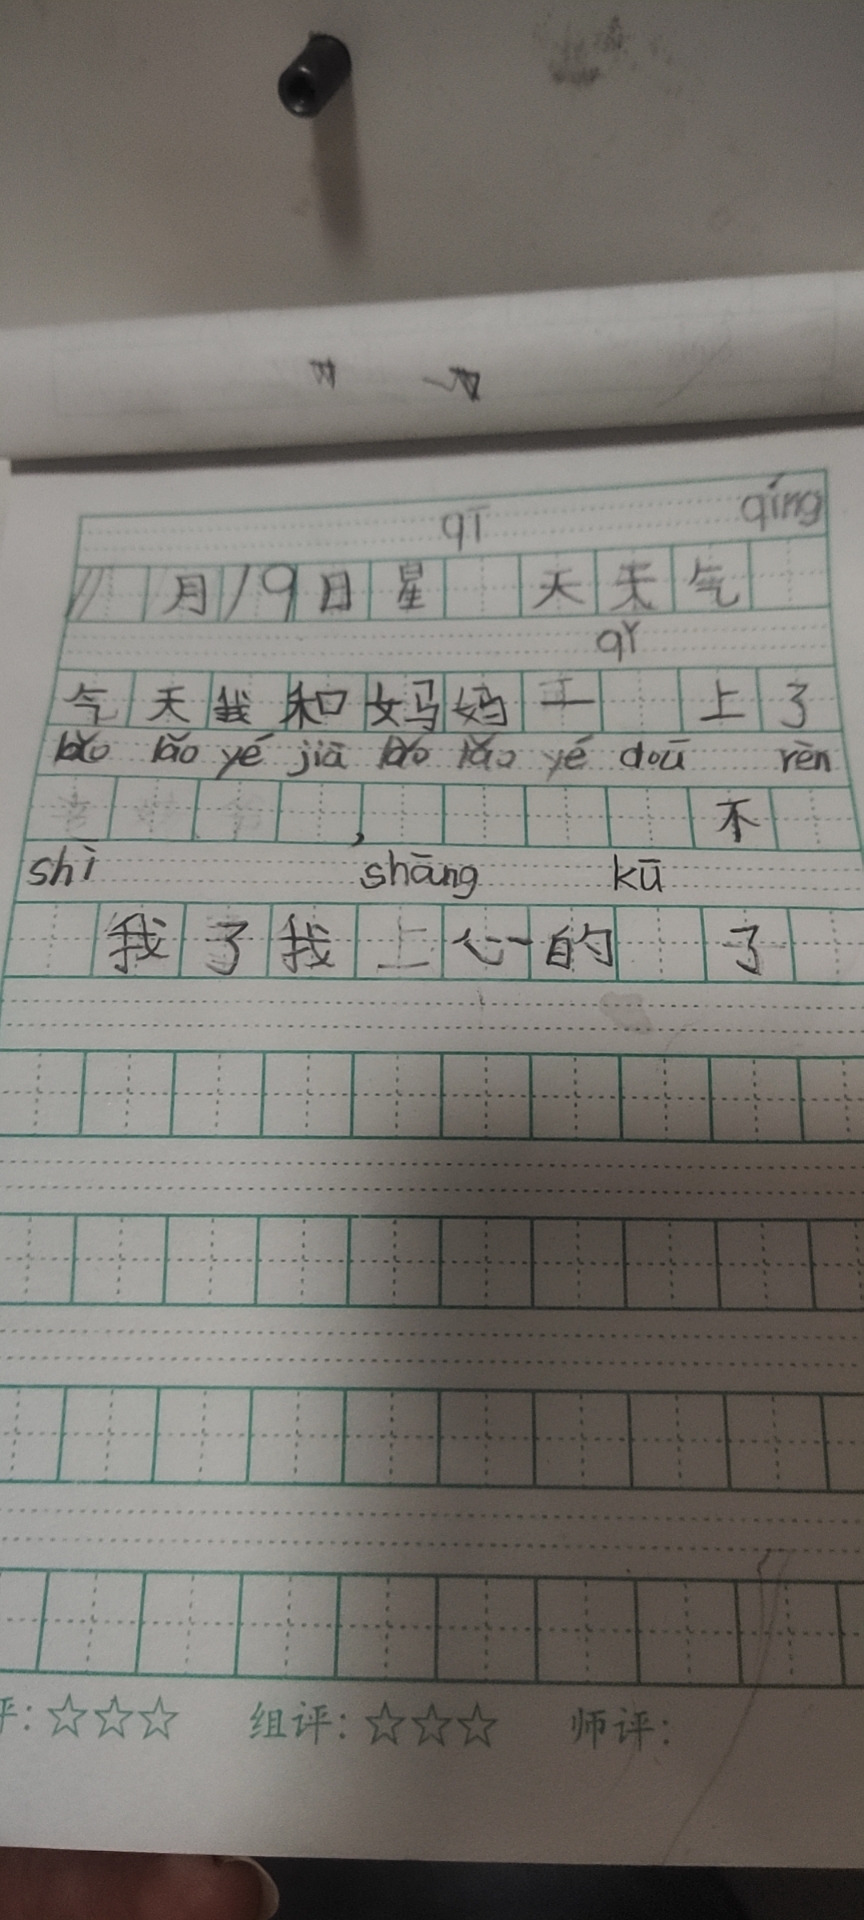 qī qíng
11月19日星 天天气
qǐ
气天我和妈妈 上了
lǎo lǎo yé jiā lǎo lǎo yé doū rèn
, 不
shì shāng kū
我了我上心的 了
评:☆☆☆ 组评:☆☆☆ 师评: